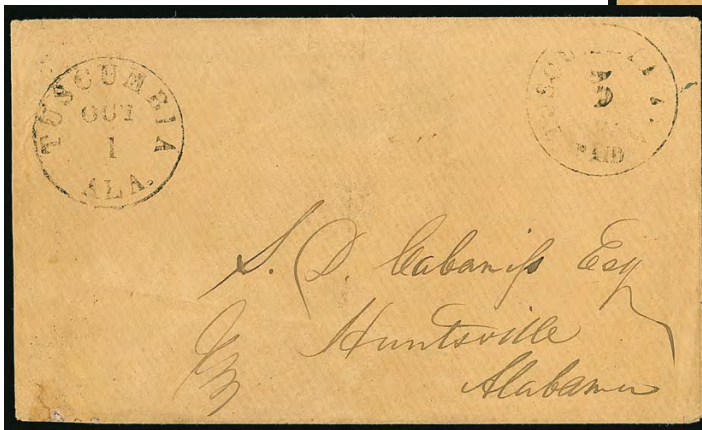 TUSCUMBIA
OCT
1
ALA.
TUSCUMBIA ALA
5
PAID
S. D. Cabaniss Esq
Huntsville
Alabama